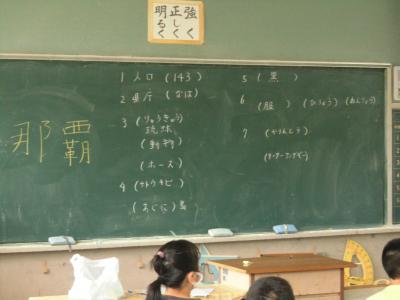 強く
正しく
明るく
那覇
1 人口 (143)
2 県庁 (なは)
3 (りゅうきゅう)
琉球
(動物)
(ホース)
4 (サトウキビ)
(あぐに)島
5 (黒)
6 (服) (ひりょう) (ねんりょう)
7 (かりんとう)
(サーターアンダギー)